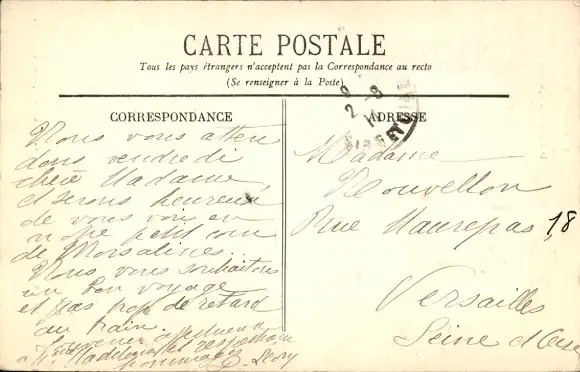 CARTE POSTALE
Tous les pays étrangers n'acceptent pas la Correspondance au recto
(Se renseigner à la Poste)
CORRESPONDANCE
Nous vous atten
dons vendredi
chère Madame,
et serons heureux
de vous voir en
notre petit coin
de Morsalines...
Nous vous souhaitons
un bon voyage
et pas trop de retard
au train.
affectueux
à
hommages
ADRESSE
Madame
Nouvellon
Rue Maurepas, 18
Versailles
Seine et Oise